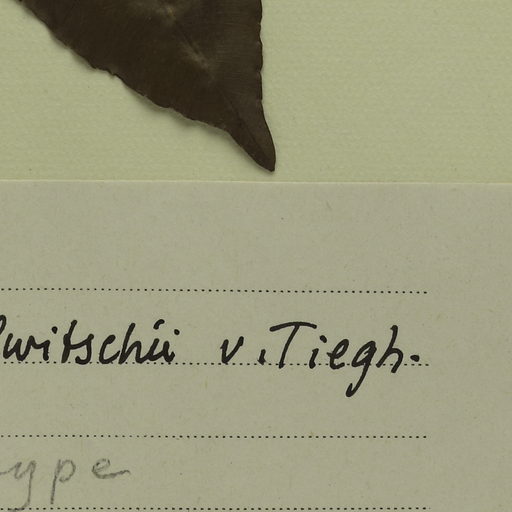 lwitschii v. Tiegh.
ype